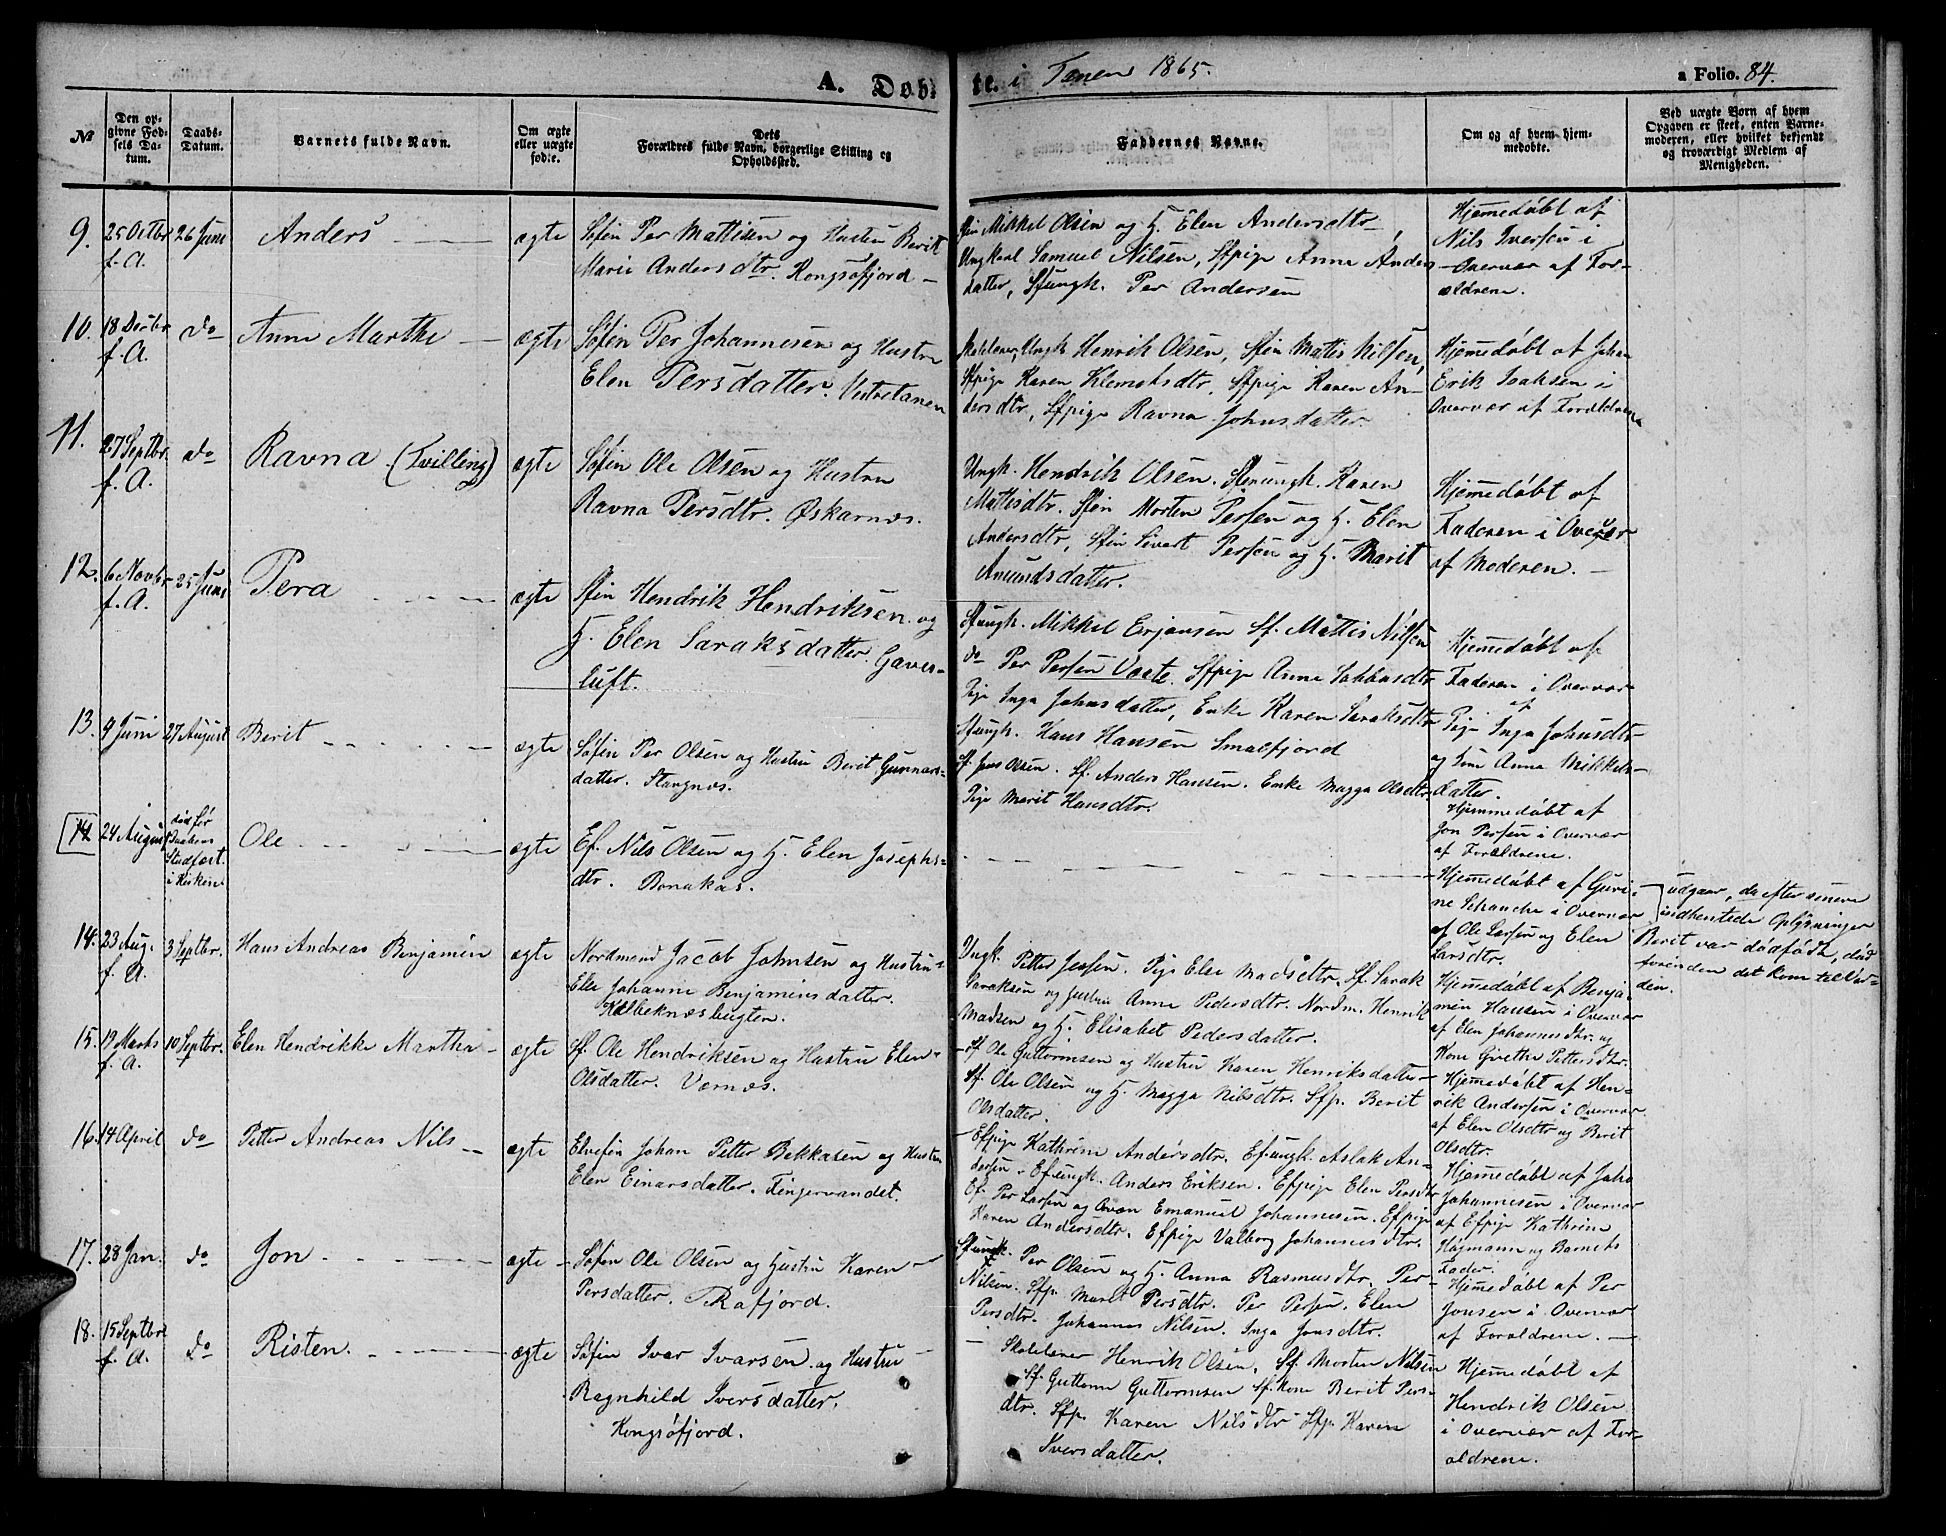 A. Døbte. i Tanen 1865.
a Folio. 84.
№
Den op-
givne Fød-
sels Da-
tum.
Daabs-
Datum.
Barnets fulde Navn.
Om ægte
eller uægte
fødte.
Dets
Forældres fulde Navn, borgerlige Stilling og
Opholdssted.
Faddernes Navne.
Om og af hvem hjem-
medøbte.
Ved uægte Børn af hvem
Opgaven er skeet, enten Barne-
moderen, eller hvilket bekjendt
og troværdigt Medlem af
Menigheden.
9.
25 Octbr
f. A.
26 Juni
Anders
ægte
Søfin Per Mattisen og Hustru Berit
Marie Andersdtr. Kongsøfjord
Sfin Mikkel Olsen og H. Elen Andersdtr,
Ungkarl Samuel Nilsen, Sfpige Anne Anders
datter, Sfungk. Per Andersen
Hjemedøbt af
Nils Iversen i
Overvær af For-
ældrene.
10.
18 Decbr
f. A.
do
Anne Marthe
ægte
Søfin Per Johannesen og Hustru
Elen Persdatter. Vestretanen
Skolelærer, Ungk Henrik Olsen, Sfin Mattis Nilsen,
Sfpige Karen Klemetsdtr, Sfpige Karen An-
dersdtr, Sfpige Ravna Johnsdatter
Hjemedøbt af Johan
Erik Isaksen i
Overvær af Forældrene
11.
27 Septbr.
f. A.
do
Ravna (Tvilling)
ægte
Søfin Ole Olsen og Hustru
Ravna Persdtr. Øskarnæs.
Ungk. Hendrik Olsen. Karen
Mattisdtr. Sfin Morten Persen og H. Elen
Andersdtr, Sfin Sivert Persen og H. Marit
Amundsdatter.
Hjemedøbt af
Faderen i Overvær
af Moderen.
12.
6 Novbr
f. A.
25 Juni
Pera
ægte
Sfin Hendrik Hendriksen og
H. Elen Saraksdatter. Gaves-
luft.
Sfungk. Mikkel Erjansen Sf. Mattis Nilsen
do Per Persen Vaate. Sfpige Anne Sabbasdtr
Pige Inga Johnsdatter, Enke Karen Saraksdtr
Hjemedøbt af
Faderen i Overvær
af
13.
9 Juni
27 August
Berit
ægte
Søfin Per Olsen og Hustru Berit Gunnars-
datter. Stangnæs.
Sfungk. Hans Hansen Smalfjord
Sf. Jens Olsen. Sf. Anders Hansen. Enke Magga Olsdtr
Pige Marit Hansdtr.
Pige Inga Johnsdtr
og Anna Mikkels-
datter.
14
24 August
død før
Daabens
Stadfæst.
i Kirken
Ole
ægte
Ef. Nils Olsen og H. Elen Josephs-
dtr. Bonakas.
Hjemmedøbt af
Jon Persen i Overvær
af Forældrene.
14.
23 Aug.
f. A.
3 Septbr.
Hans Andreas Benjamin
ægte
Nordmand Jacob Johnsen og Hustru
Else Johanne Benjaminsdatter.
Kalbeknæsbugten.
Ungk. Petter Jessen. Pige Else Madsdtr. Sf. Sarak
Saraksen og Hustru Anne Pedersdtr. Nordm. Henrik
Madsen og H. Elisabet Pedersdatter.
Hjemedøbt af Guri-
ne Schanche i Overvær
af Ole Larsen og Elen
Larsdtr.
udgaar, da efter senere
indhentede Oplysninger
Berit var dødfødt, død
forinden det kom til Ver-
den.
15.
19 Marts
f. A.
10 Septbr.
Elen Hendrikke Martha
ægte
Sf. Ole Hendriksen og Hustru Elen
Olsdatter. Vernæs.
Sf. Ole Guttormsen og Hustru Karen Henriksdatter
Sf. Ole Olsen og H. Magga Nilsdtr. Sfp. Berit
Olsdatter.
Hjemedøbt af Benja-
min Hansen i Overvær
af Elen Johannesdtr. og
Kone Grethe Pettersdtr.
16.
14 April
do
Petter Andreas Nils
ægte
Elvefin Johan Petter Bekkasen og Hustru
Elen Einarsdatter. Fingervandet.
Efpige Kathrine Andersdtr. Efungk. Aslak An-
dersen. Efungk. Anders Eriksen. Efpige Elen Persdtr
Ef. Per Larsen og Emanuel Johannesen. Efpige
Karen Andersdtr. Efpige Valborg Johannesdtr.
Hjemedøbt af Hen-
rik Andersen i Overvær
af Elen Olsdtr og Berit
Olsdtr.
17.
28 Jan.
do
Jon
ægte
Søfin Ole Olsen og Hustru Karen
Persdatter. Trafjord.
Sfungk. Per Olsen og H. Anna Rasmusdtr. Per
Nilsen. Sfp. Maret Persdtr. Per Persen. Elen
Persdtr. Johannes Nilsen. Inga Jonsdtr.
Hjemedøbt af Joha
Johannesen i Overvær
af Efpige Kathrine
Højmann og Barnets
Fader.
18.
15 Septbr
f. A.
do
Risten
ægte
Søfin Ivar Ivarsen og Hustru
Ragnhild Iversdatter.
Kongsøfjord.
Skolelærer Henrik Olsen, Sf. Morten Nilsen
Sf. Guttorm Guttormsen Sf. Kone Berit Pers-
dtr. Sfp. Karen Nilsdtr Sfp. Karen
Iversdatter.
Hjemedøbt af Per
Jonsen i Overvær
af Forældrene.
Hjemedøbt af
Hendrik Olsen
i Overvær af For-
ældrene.